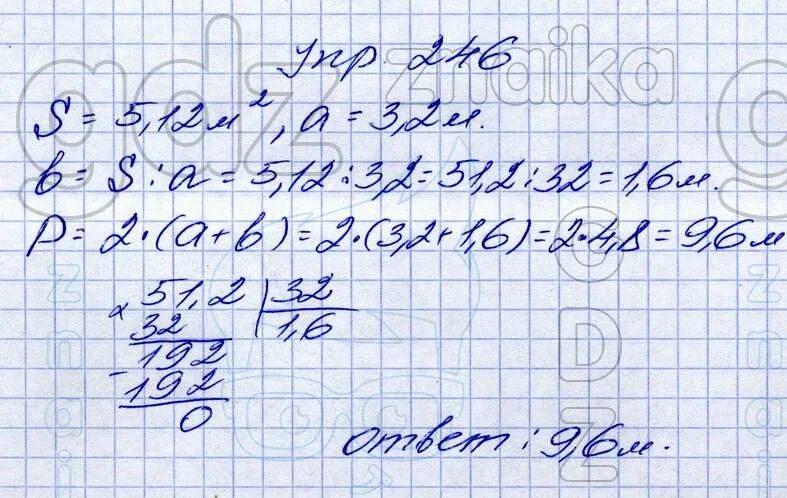 упр 246
S = 5,12 м², a = 3,2 м.
b = S : a = 5,12 : 3,2 = 51,2 : 32 = 1,6 м.
P = 2·(a+b) = 2·(3,2+1,6) = 2·4,8 = 9,6 м
51,2 | 32
32 1,6
- 192
192
0
ответ : 9,6 м.
gdz znaika
gdz
znai
GDZ
znai